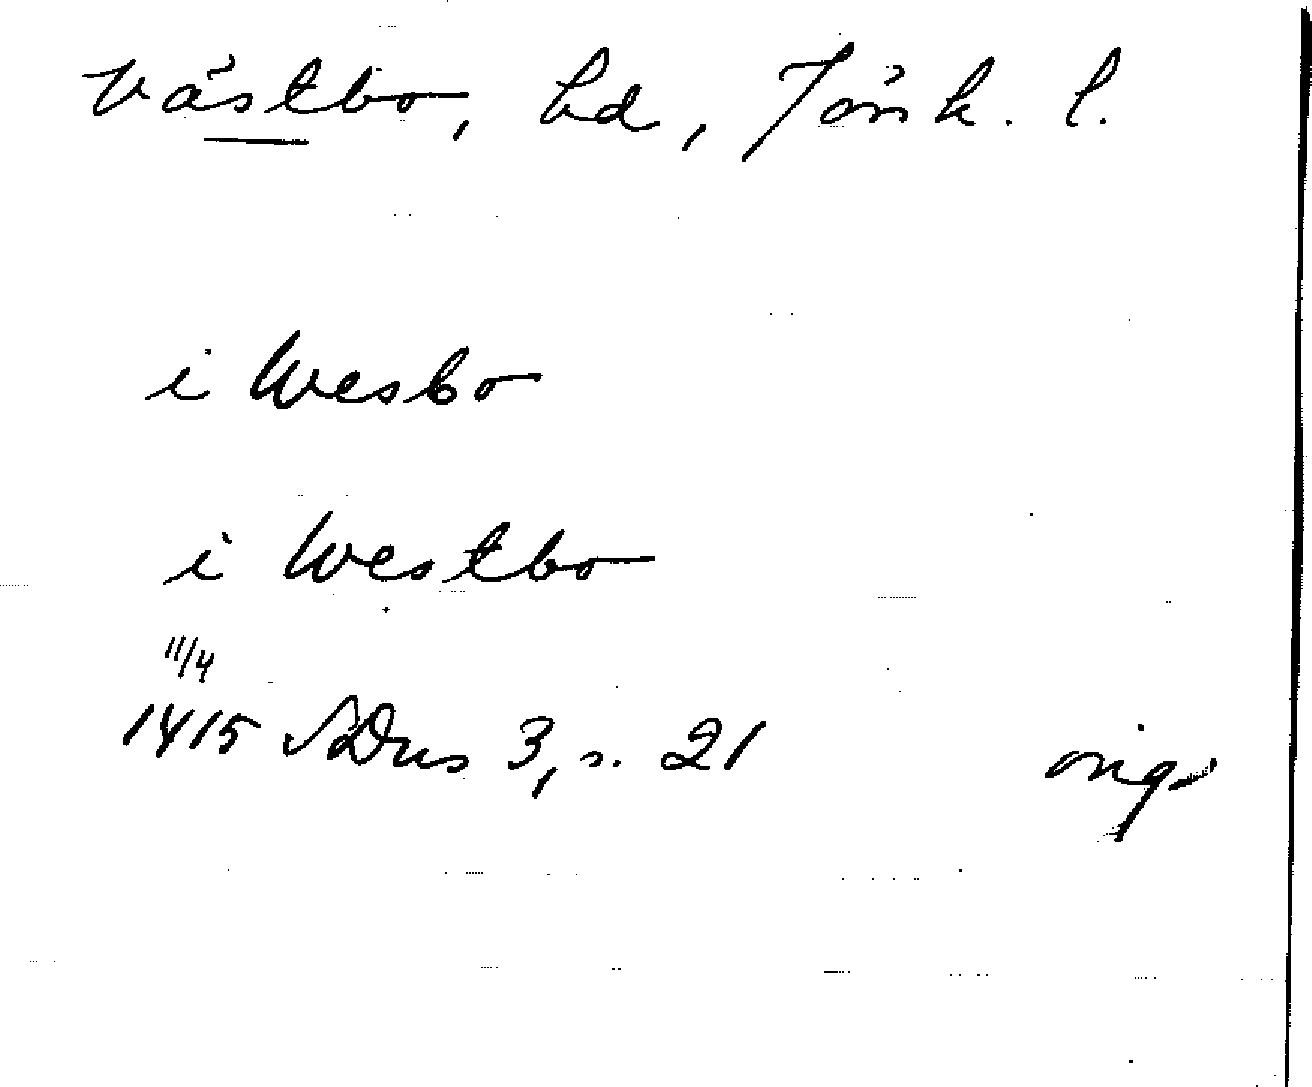 Västbo, hd, Jönk. l.
i Wesbo
i Westbo
11/4
1415 SDns 3, s. 21 orig.